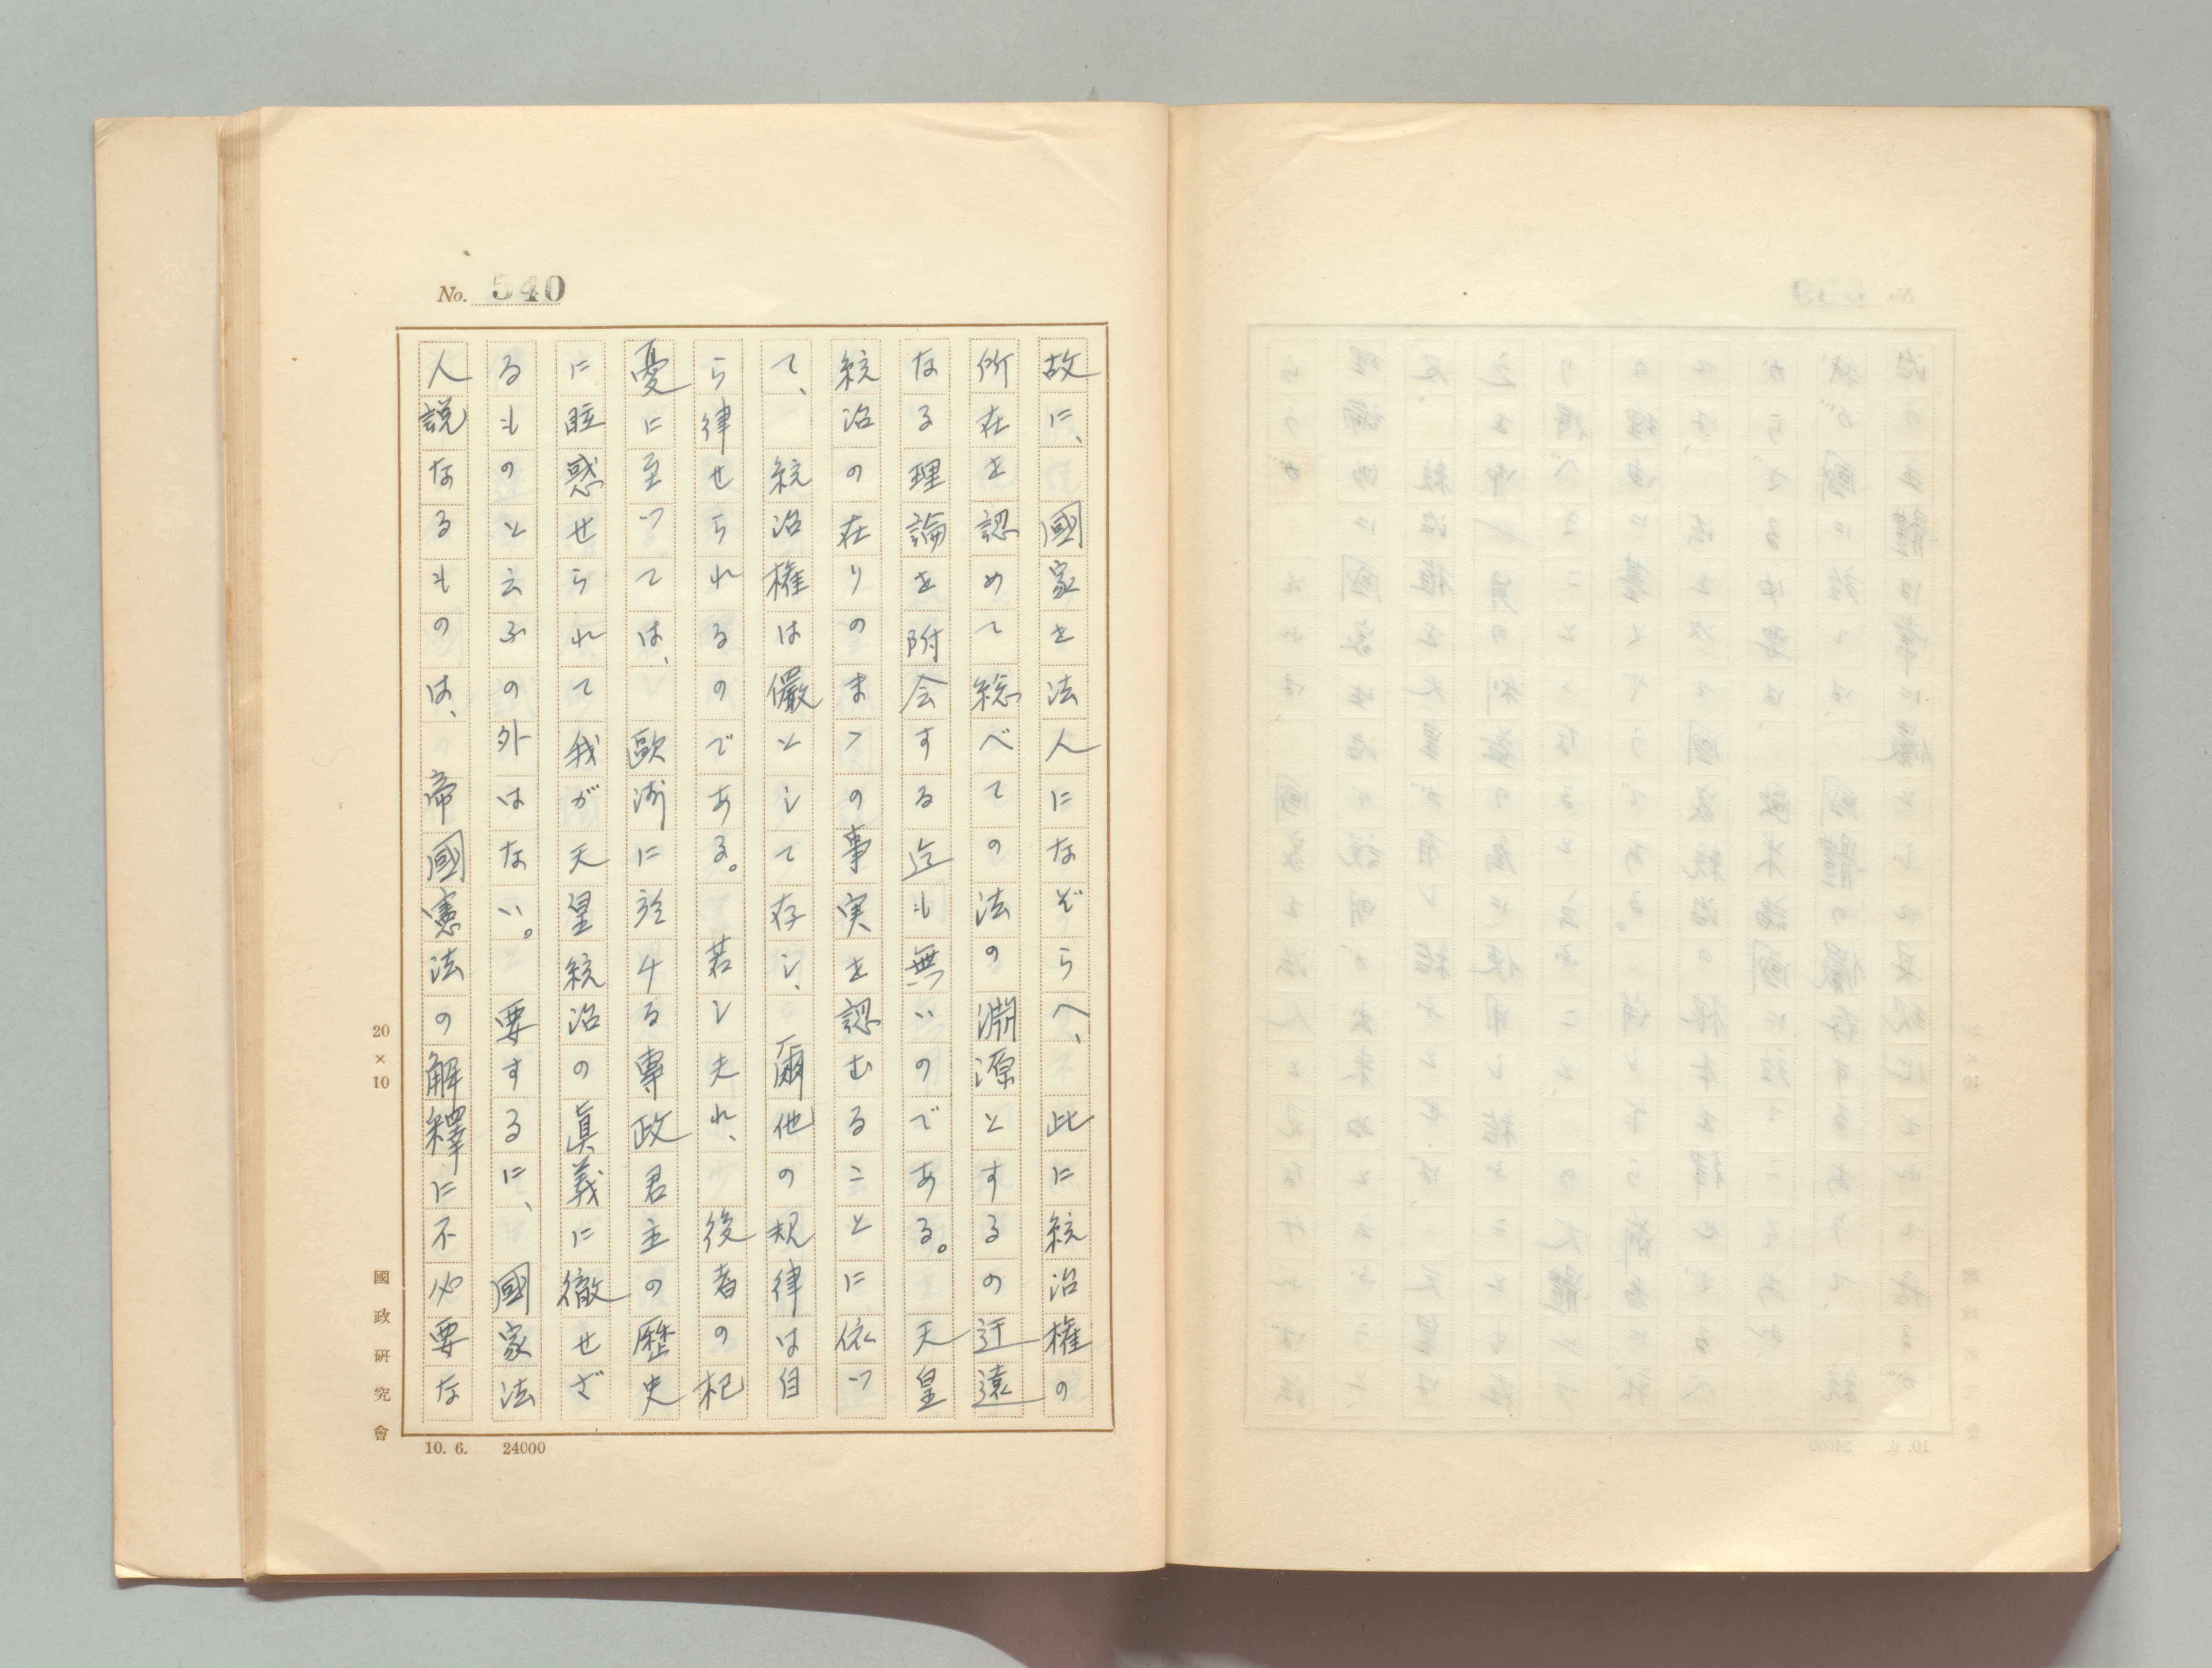 No. 540
故に、國家を法人になぞらへ、此に統治権の
所在を認めて総べての法の渕源とするの迂遠
なる理論を附会する迄も無いのである。天皇
統治の在りのまゝの事実を認むることに依つ
て、統治権は儼として存し、爾他の規律は自
ら律せられるのである。若し夫れ、後者の杞
憂に至つては、歐洲に於ける專政君主の歴史
に眩惑せられて我が天皇統治の眞義に徹せざ
るものと云ふの外はない。要するに、國家法
人説なるものは、帝國憲法の解釋に不必要な
20×10
國政研究會
10. 6. 24000